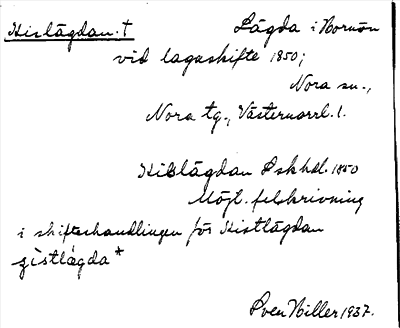 Kislågdan. † Lägda i Bornön
vid lagaskifte 1850;
Nora sn.,
Nora tg., Västernorrl. l.
Kislågdan Lskhdl. 1850
Möjl. felskrivning
i skifteshandlingen för Kistlågdan
Sven Hiller 1937.